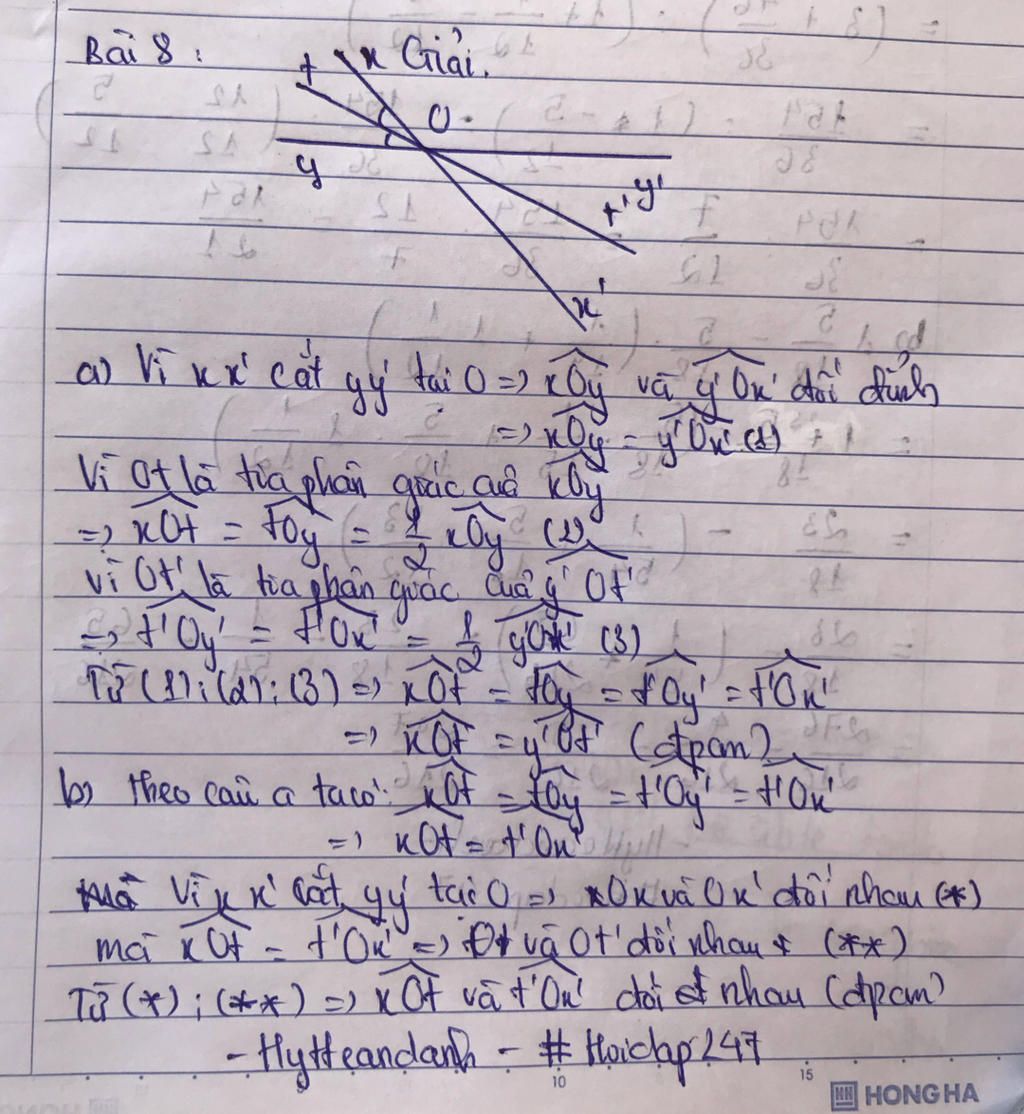 Bài 8 :
Giải.
t x
O
y
t' y'
x'
a) Vì xx' cắt yy' tại O => xOy và y'Ox' đối đỉnh
=> xOy = y'Ox' (1)
Vì Ot là tia phân giác của xOy
=> xOt = tOy = 1/2 xOy (2)
Vì Ot' là tia phân giác của y'Ot'
=> t'Oy' = t'Ox' = 1/2 y'Ox' (3)
Từ (1) ; (2) ; (3) => xOt = tOy = t'Oy' = t'Ox'
=> xOt = y'Ot' (đpcm)
b) Theo câu a ta có : xOt = tOy = t'Oy' = t'Ox'
=> xOt = t'Ox'
Vì xx' cắt yy' tại O => xOx và Ox' đối nhau (*)
mà xOt = t'Ox' => Ot và Ot' đối nhau (**)
Từ (*) ; (**) => xOt và t'Ox' đối nhau (đpcm)
- HyHeandanh - # Hoidap247
9 10 15
HH HONG HA